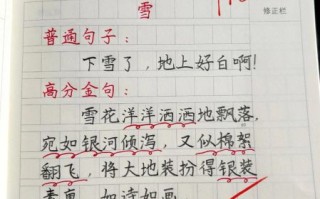 雪
修正栏
普通句子：
下雪了，地上好白啊！
高分金句：
雪花洋洋洒洒地飘落，
宛如银河倾泻，又似棉絮
翻飞，将大地装扮得银装
素裹，如诗如画